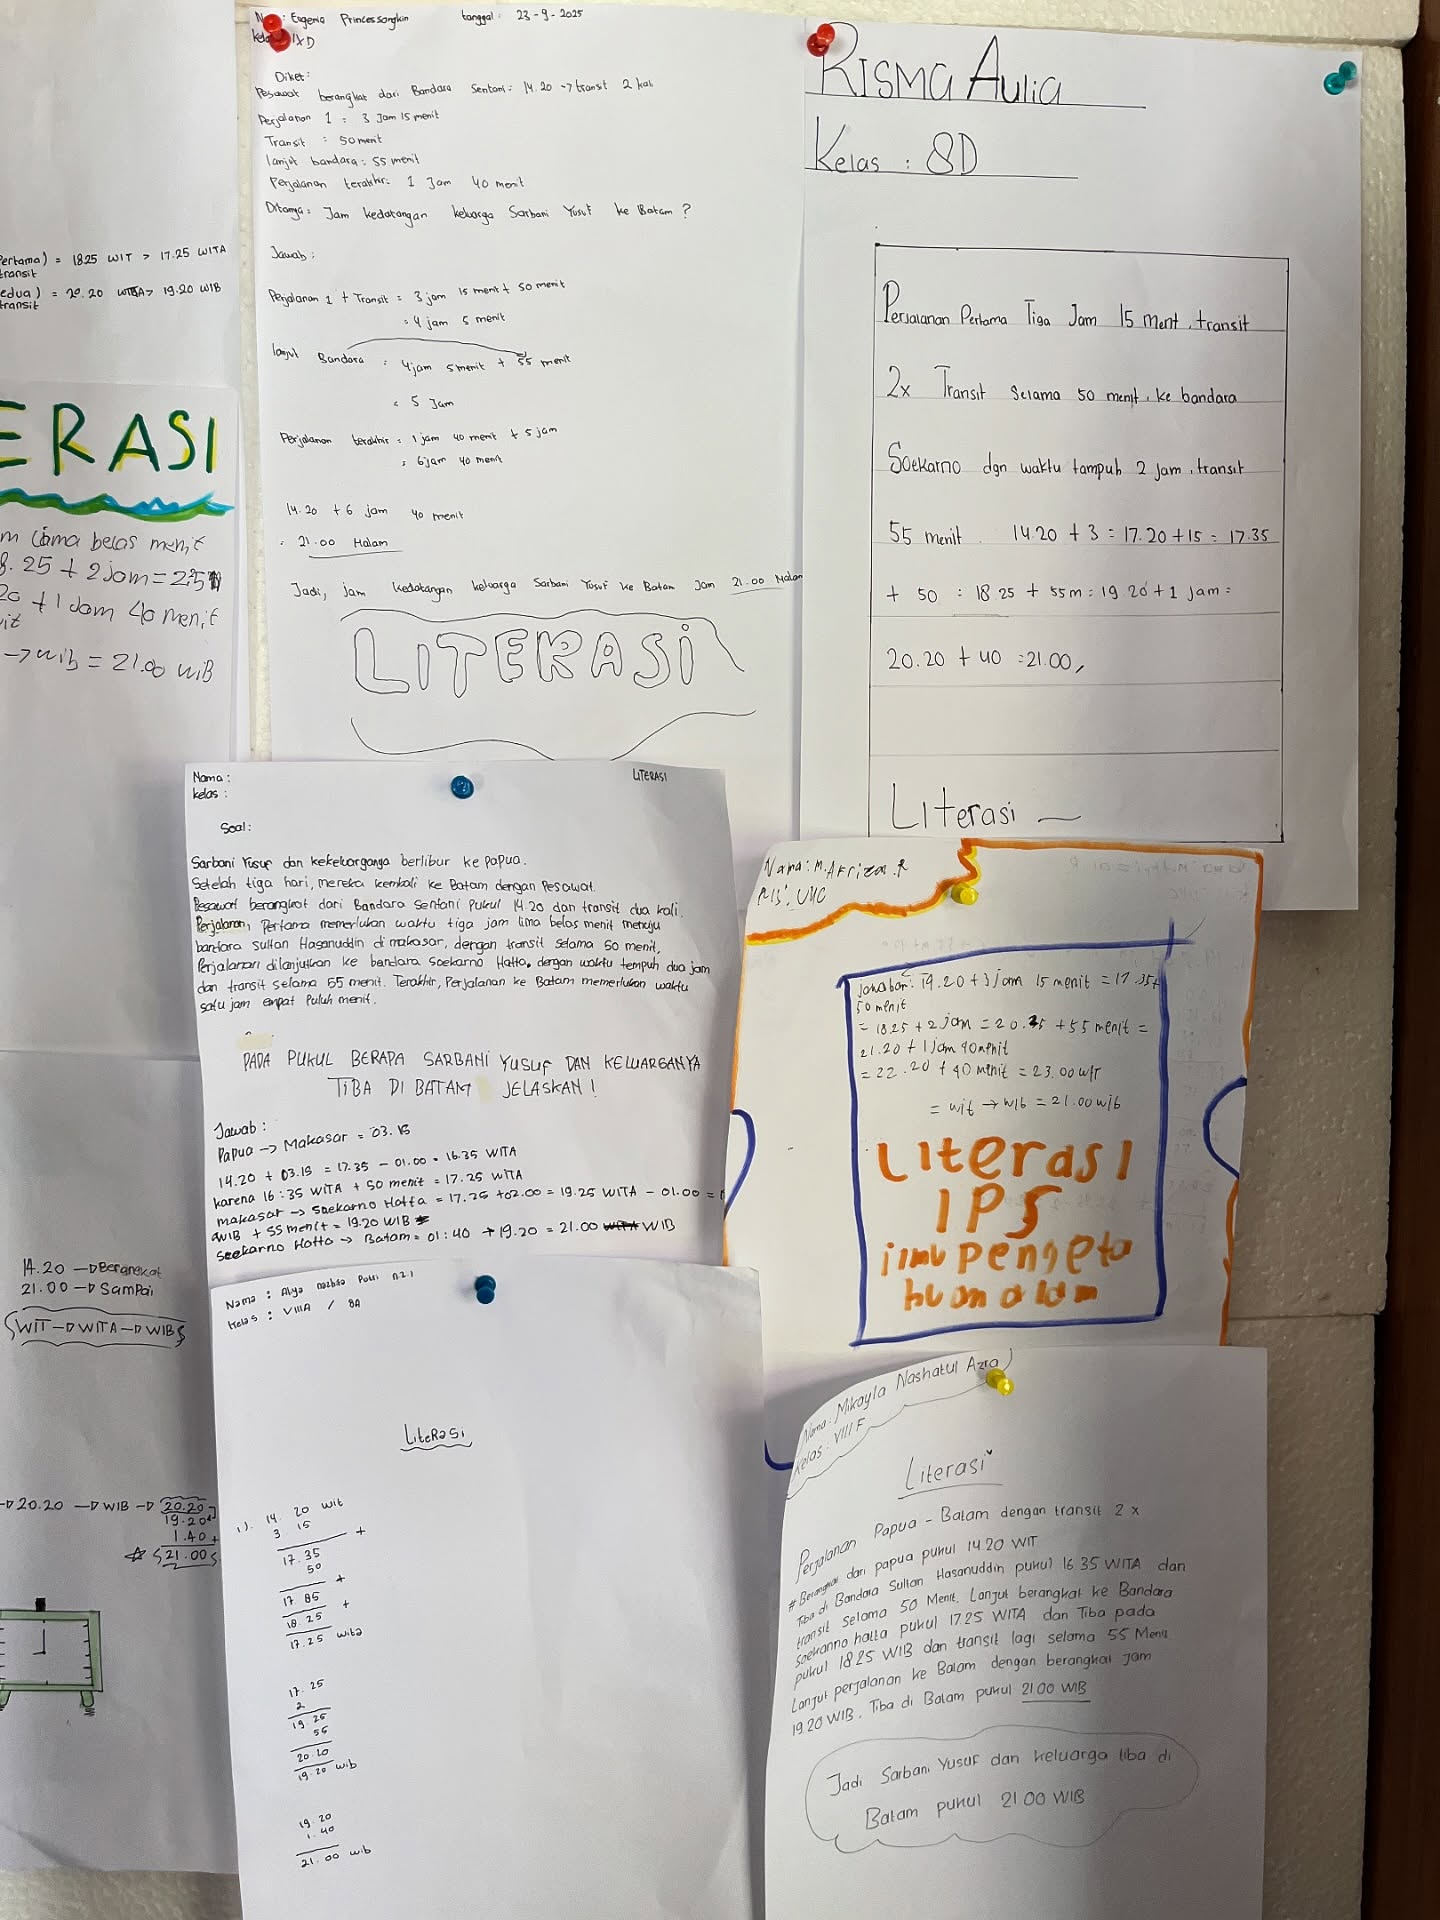 Eugenia Princessangkin tanggal : 23-9-2025
IXD
Diket:
Pesawat berangkat dari Bandara Sentani : 14.20 -> transit 2 kali
Perjalanan 1 : 3 Jam 15 menit
Transit : 50 menit
lanjut bandara : 55 menit
Perjalanan terakhir : 1 Jam 40 menit
Ditanya : Jam kedatangan keluarga Sarbani Yusuf ke Batam ?
Jawab :
Perjalanan 1 + Transit = 3 jam 15 menit + 50 menit
= 4 jam 5 menit
lanjut Bandara = 4 jam 5 menit + 55 menit
= 5 Jam
Perjalanan terakhir = 1 jam 40 menit + 5 jam
= 6 jam 40 menit
14.20 + 6 jam 40 menit
= 21.00 Malam
Jadi, jam kedatangan keluarga Sarbani Yusuf ke Batam Jam 21.00 Malam
LITERASI
RISMA AULIA
Kelas : 8D
Perjalanan Pertama Tiga Jam 15 menit, transit
2x Transit Selama 50 menit, ke bandara
Soekarno dgn waktu tampuh 2 jam, transit
55 menit 14.20 + 3 = 17.20 + 15 = 17.35
+ 50 = 18.25 + 55m = 19.20 + 1 jam =
20.20 + 40 = 21.00,
Literasi
ertama) = 18.25 WIT > 17.25 WITA
transit
edua) = 20.20 WITA > 19.20 WIB
transit
ERASI
m lima belas menit
.25 + 2 jam =
20 + 1 Jam 40 menit
it
-> wib = 21.00 WIB
Nama : LITERASI
kelas :
Soal :
Sarbani Yusuf dan kekeluarganga berlibur ke papua.
Setelah tiga hari, mereka kembali ke Batam dengan Pesawat.
Pesawat berangkat dari Bandara Sentani Pukul 14.20 dan transit dua kali.
Perjalanan, Pertama memerlukan waktu tiga jam lima belas menit menuju
bandara Sultan Hasanuddin di makasar, dengan transit selama 50 menit,
Perjalanan dilanjutkan ke bandara Soekarno Hatta, dengan waktu tempuh dua jam
dan transit selama 55 menit. Terakhir, Perjalanan ke Batam memerlukan waktu
satu jam empat Puluh menit.
PADA PUKUL BERAPA SARBANI YUSUF DAN KELUARGANYA
TIBA DI BATAM JELASKAN !
Jawab :
Papua -> Makasar = 03.15
14.20 + 03.15 = 17.35 - 01.00 = 16.35 WITA
karena 16:35 WITA + 50 menit = 17.25 WITA
makasar -> Soekarno Hatta = 17.25 + 02.00 = 19.25 WITA - 01.00 =
WIB + 55 menit = 19.20 WIB
Soekarno Hatta -> Batam = 01:40 + 19.20 = 21.00 WIB
Nama : M. Afriza. R
jawaban : 19.20 + 3 jam 15 menit = 17.35 +
50 menit
= 18.25 + 2 jam = 20.25 + 55 menit =
21.20 + 1 jam 40 menit
= 22.20 + 40 menit = 23.00 wit
= wit -> wib = 21.00 wib
Literasi
IPS
ilmu pengeta
huan alam
14.20 -> Berangkat
21.00 -> Sampai
WIT -> WITA -> WIB
-> 20.20 -> WIB -> 20.20
19.20
1.40 +
21.00
Nama : Alya nazhifa Putri
Kelas : VIIIA / 8A
LiteRasi
1). 14. 20 wit
3 15
+
17.35
50
+
17 85
18.25 +
17.25 wita
17.25
2
19 25
55
20.20
19.20 wib
19.20
1.40
21.00 wib
Nama : Mikayla Nashatul Azra
Kelas : VIII F
Literasi
Perjalanan Papua - Batam dengan transit 2 x
# Berangkat dari papua pukul 14.20 WIT
Tiba di Bandara Sultan Hasanuddin pukul 16 35 WITA dan
transit selama 50 Menit. Lanjut berangkat ke Bandara
Soekarno hatta pukul 17.25 WITA dan Tiba pada
pukul 18 25 WIB dan transit lagi selama 55 Menit
Lanjut perjalanan ke Batam dengan berangkat jam
19.20 WIB. Tiba di Batam pukul 21.00 WIB
Jadi Sarbani Yusuf dan keluarga tiba di
Batam pukul 21 00 WIB